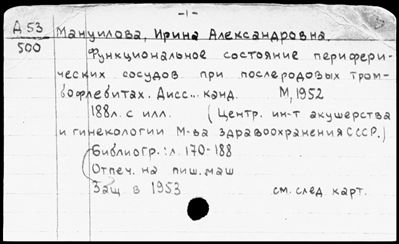 -1-
Д 53
500
Мануилова, Ирина Александровна.
Функциональное состояние перифери-
ческих сосудов при послеродовых тром-
бофлебитах. Дисс... канд. М, 1952
188л. с илл. (Центр. ин-т акушерства
и гинекологии М-ва здравоохранения СССР.)
Библиогр.: л. 170-188
Отпеч. на пиш. маш
Защ в 1953 см. след карт.